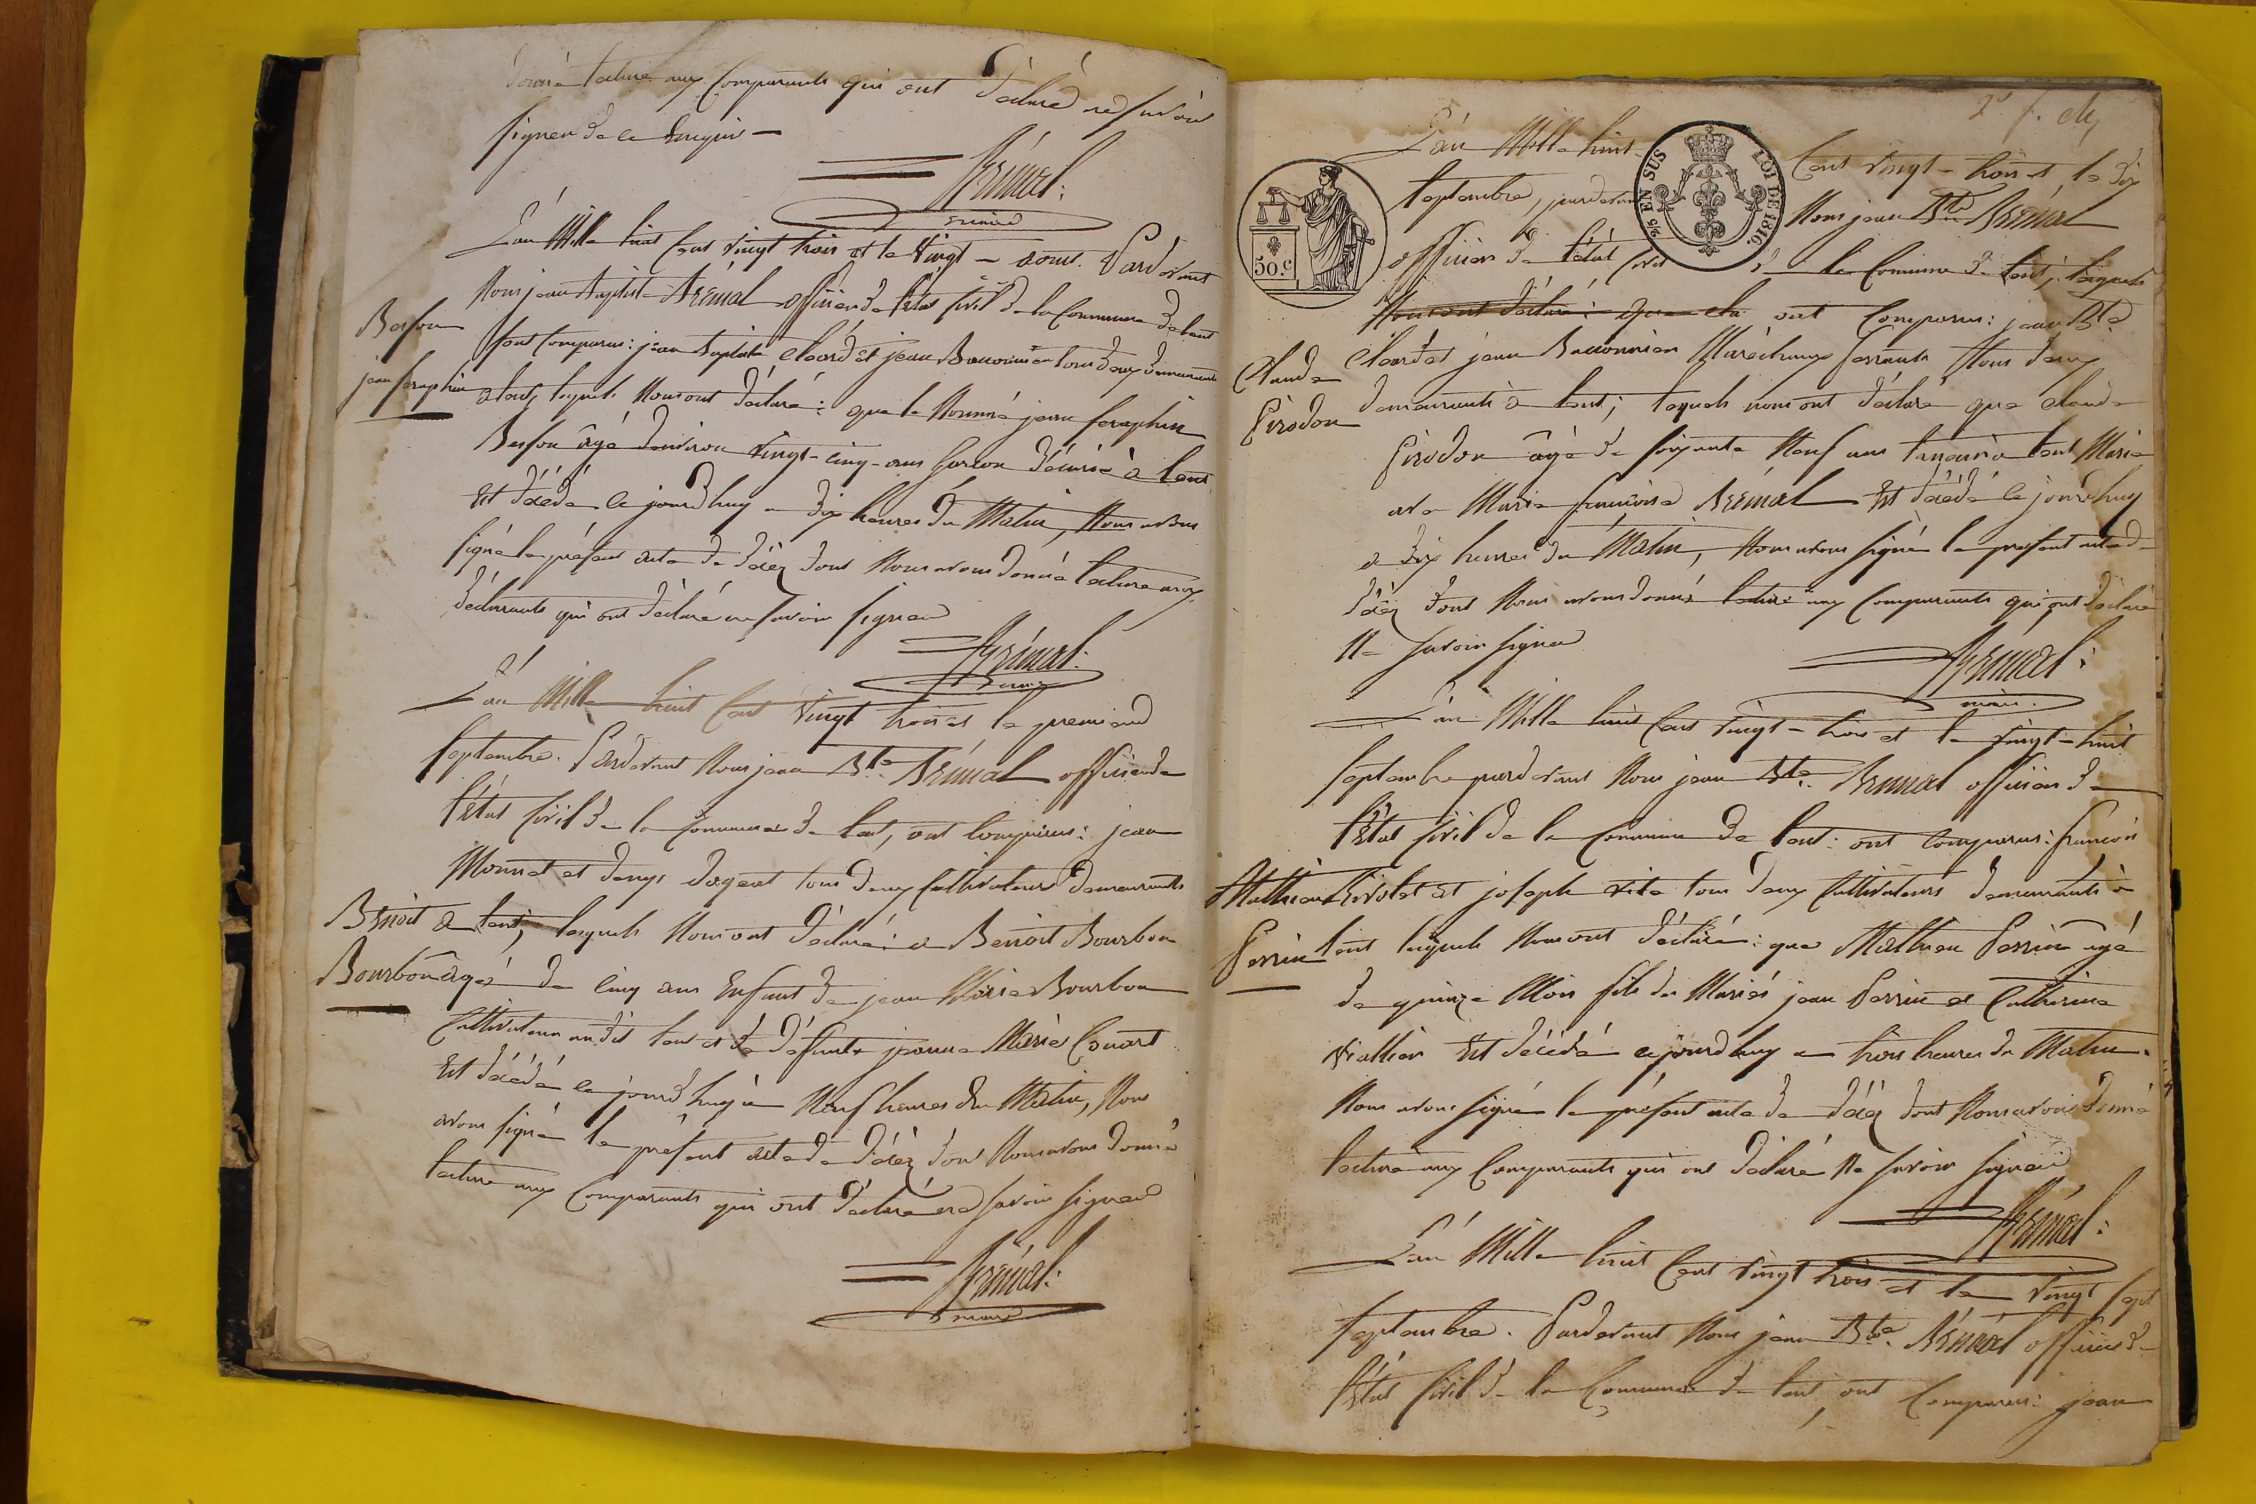 donné lecture aux Comparants qui ont Déclaré ne savoir
signer de ce Enquis —
Brémal:
maire
L'an Mille huit Cent vingt trois et le vingt — aout. Pardevant
Nous jean Baptiste Brémal officier de l'état Civil de la Commune de Lent
Besson
sont Comparus: jean Baptiste Cloard et jean Bauonnier tous deux demeurants
jean Seraphin
a Lent, lesquels Nous ont Déclaré: que le Nommé jean Seraphin
Besson âgé denviron vingt-cinq-ans Garcon d'écurie à Lent
Est Décédé ce jourd'huy a Dix heures Du Matin, Nous avons
signé le présent acte de Décéz dont Nous avons donné lecture aux
Déclarants qui ont Déclaré ne savoir signer
Brémal:
L'an Mille huit Cent vingt trois et le premier
Septembre. Pardevant Nous jean Bte Brémal officier de
l'état Civil de la Commune de Lent, ont Comparus: jean
Monnet et Denys tous deux Cultivateurs demeurants
Benoit
a Lent, lesquels Nous ont Déclaré: a Benoit Bourbon
Bourbon
âgé de Cinq ans Enfant de jean Marie Bourbon
Cultivateur au dit Lent et de Défunte jeanne Marie
Est Décédé ce jourd'huy à Neuf heures du Matin, Nous
avons signé le présent acte de Décéz dont Nous avons donné
lecture aux Comparants qui ont Déclaré ne savoir signer
Brémal:
maire
2e f.
L'an Mille huit Cent vingt-trois et le dix
Septembre, pardevant Nous jean Bte Brémal
officier de l'état Civil de la Commune de Lent, lesquels
50.c
2/5 EN SUS LOI DE 1816.
Nous ont Déclaré: que ont Comparus: jean Bte
Claude
Cloard et jean Bauonnier Maréchaux ferrants tous deux
Pirodon
demeurants à Lent; lesquels nous ont Déclaré que Claude
Pirodon âgé de soixante Neuf ans a Lent Marié
avec Marie francoise Brémal Est Décédé ce jourd'huy
a dix heures du Matin, Nous avons signé le présent acte de
Décéz dont Nous avons donné lecture aux Comparants qui ont Déclaré
Ne savoir signer
Brémal:
maire.
L'an Mille huit Cent vingt-trois et le vingt-huit
Septembre pardevant Nous jean Bte Brémal officier de
l'Etat Civil de la Commune de Lent: ont Comparus: francois
Mathieu
et joseph tous deux Cultivateurs demeurants à
Perrin
Lent lesquels Nous ont Déclaré: que Mathieu Perrin âgé
de quinze Mois fils des Mariés jean Perrin et Catherine
Viallier Est décédé ce jourd'huy a trois heures du Matin.
Nous avons signé le présent acte de Décéz dont Nous avons donné
lecture aux Comparants qui ont Déclaré Ne savoir signer
Brémal:
L'an Mille huit Cent vingt trois et le vingt sept
Septembre. Pardevant Nous jean Bte. Brémal officier de
l'Etat Civil de la Commune de Lent, ont Comparus: jean